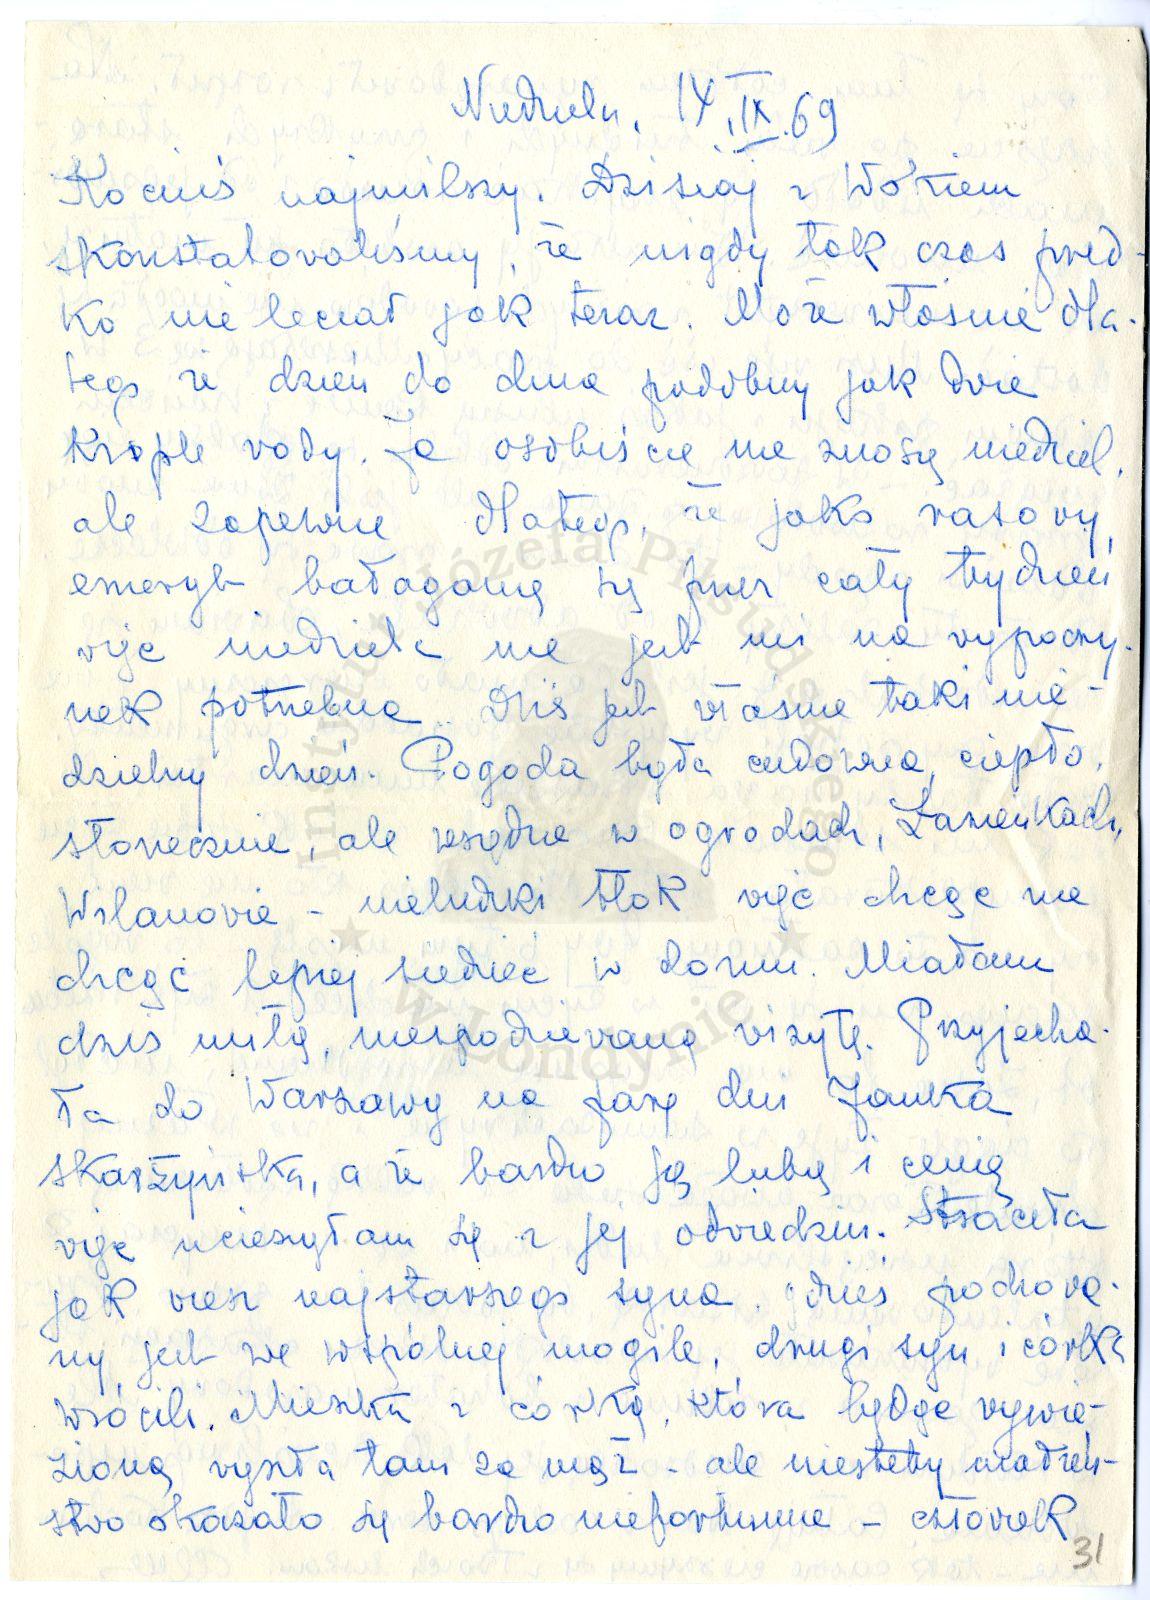 Niedziela, 14.IX.69
Kociuś najmilszy. Dzisiaj z Wo'kiem
skonstatowaliśmy, że nigdy tak czas pręd-
ko nie leciał jak teraz. Może właśnie dla-
tego że dzień do dnia podobny jak dwie
krople wody. Ja osobiście nie znoszę niedziel,
ale zapewne dlatego, że jako rasowy
emeryt bałaganię się przez cały tydzień
więc niedziela nie jest mi na wypoczy-
nek potrzebna. Dziś jest właśnie taki nie-
dzielny dzień. Pogoda była cudowna, ciepło,
słonecznie, ale wszędzie w ogrodach, Łazienkach,
Wilanowie - nieludzki tłok więc chcąc nie
chcąc lepiej siedzieć w domu. Miałam
dziś miłą, niespodziewaną wizytę. Przyjecha-
ła do Warszawy na parę dni Janka
Skarżyńska, a że bardzo ją lubię i cenię
więc ucieszyłam się z jej odwiedzin. Straciła
jak wiesz najstarszego syna, gdzieś pochowa-
ny jest we wspólnej mogile, drugi syn i córka
wrócili. Mieszka z córką, która będąc wywie-
zioną wyszła tam za mąż - ale niestety małżeń-
stwo okazało się bardzo niefortunne - człowiek
31
Instytut Józefa Piłsudskiego
w Londynie